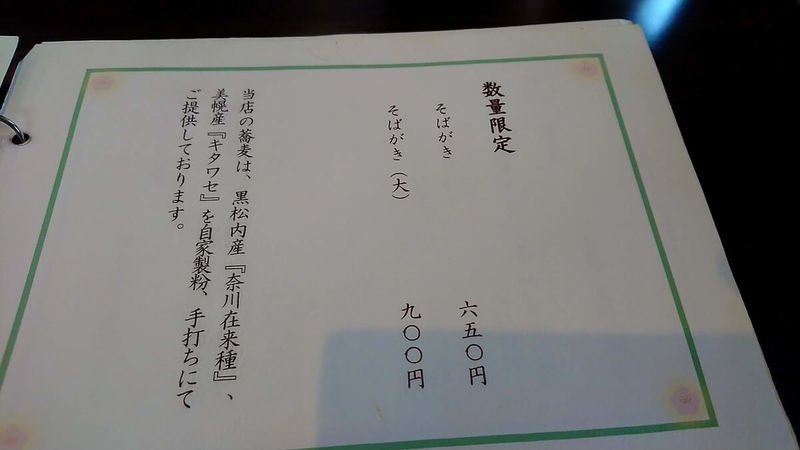 数量限定
そばがき 六五〇円
そばがき（大） 九〇〇円
当店の蕎麦は、黒松内産『奈川在来種』、
美幌産『キタワセ』を自家製粉、手打ちにて
ご提供しております。